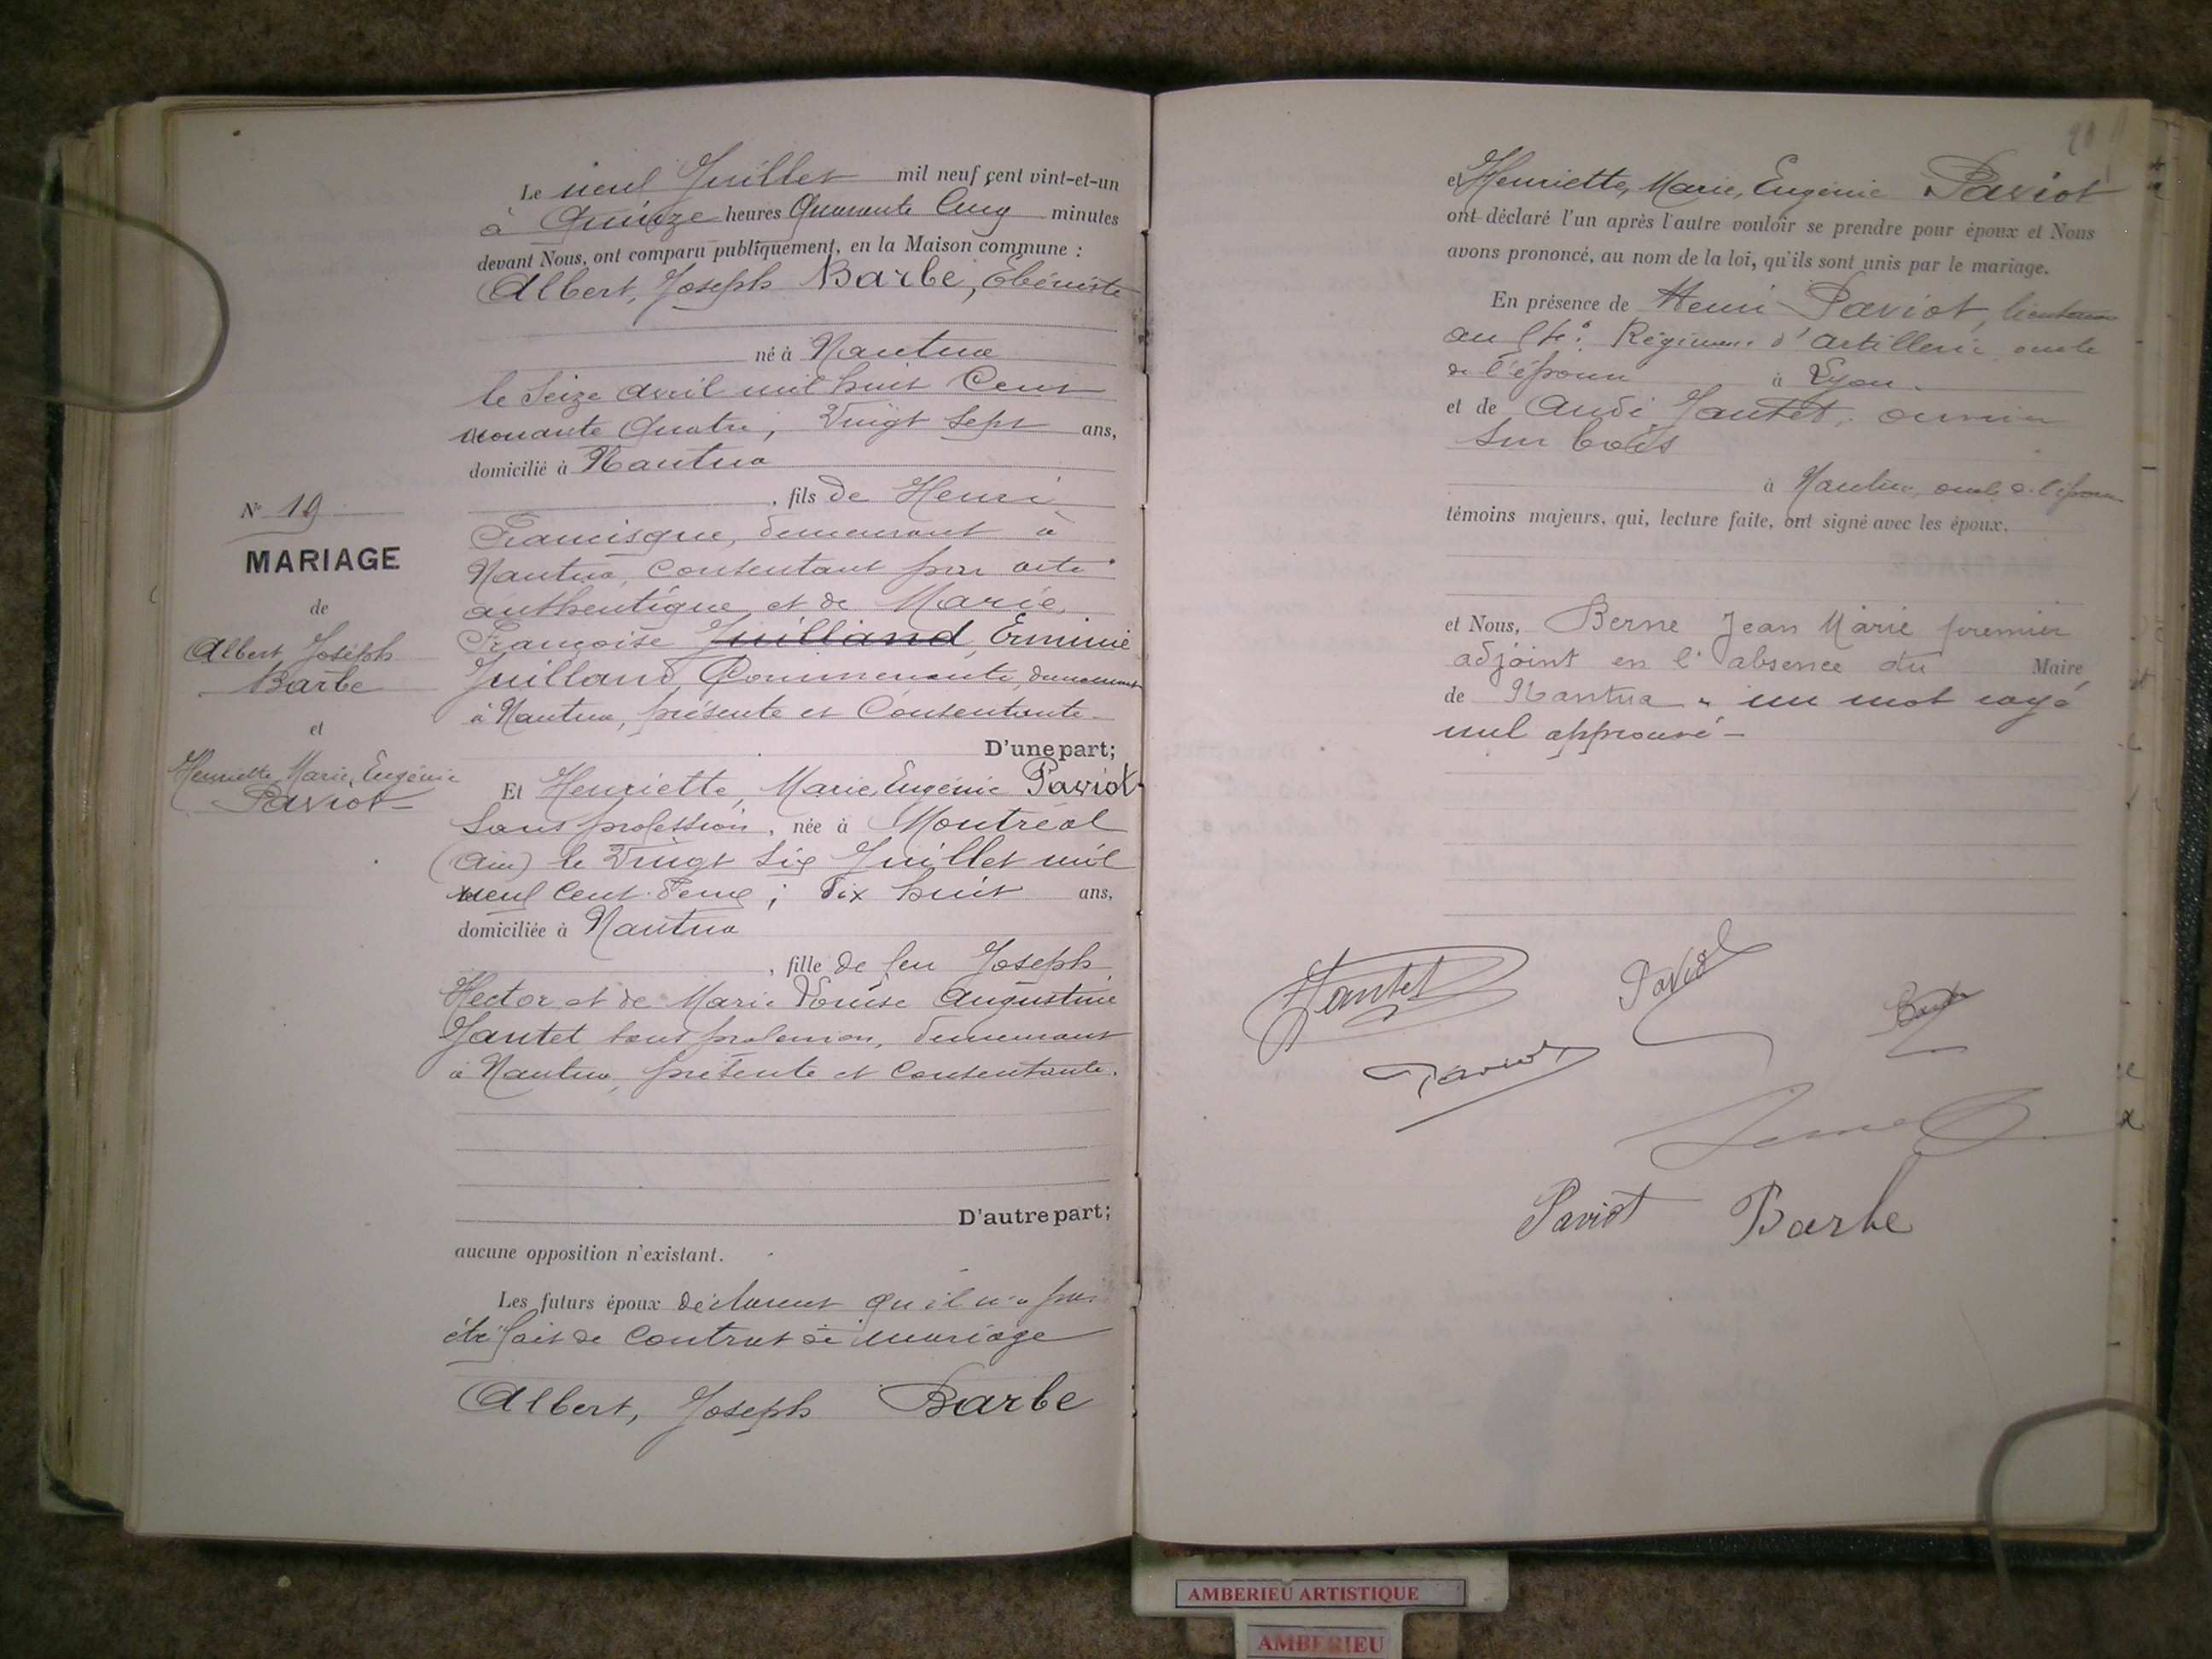 Le neuf Juillet mil neuf cent vint-et-un
à Quinze heures Quarante Cinq minutes
devant Nous, ont comparu publiquement, en la Maison commune :
Albert, Joseph Barbe, Ebéniste
né à Nantua
le Seize avril mil huit Cent
nonante Quatre, Vingt Sept ans,
domicilié à Nantua
, fils de Henri
Francisque, demeurant à
Nantua, Consentant par acte
authentique, et de Marie
Françoise Juilland, Erminie
Juilland, Commercante, demeurant
à Nantua, présente et Consentante
D'une part;
Et Henriette, Marie, Eugénie Paviot
Sans profession, née à Montréal
(Ain) le Vingt Six Juillet mil
neuf Cent Deux ; Dix huit ans,
domiciliée à Nantua
, fille de feu Joseph
Hector et de Marie Louise Augustine
Jantet sans profession, demeurant
à Nantua, présente et Consentante.
D'autre part;
aucune opposition n'existant.
Les futurs époux déclarent qu'il n'a pas
été fait de Contrat de mariage
Albert, Joseph Barbe
N° 19
MARIAGE
de
Albert Joseph
Barbe
et
Henriette, Marie, Eugénie
Paviot
et Henriette, Marie, Eugénie Paviot
ont déclaré l'un après l'autre vouloir se prendre pour époux et Nous
avons prononcé, au nom de la loi, qu'ils sont unis par le mariage.
En présence de Henri Paviot, lieutenant
au Régiment d'Artillerie oncle
de l'épouse à Lyon.
et de André Jantet, ouvrier
Sur bois
à Nantua, oncle de l'épouse
témoins majeurs, qui, lecture faite, ont signé avec les époux.
et Nous, Berne Jean Marie premier
adjoint en l'absence du Maire
de Nantua " un mot rayé
nul approuvé -
Jantet
Paviot
Barbe
Paviot
Berne
Paviot Barbe
AMBERIEU ARTISTIQUE
AMBERIEU